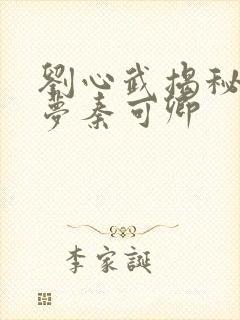 劉心武揭秘
夢秦可卿
李家誕